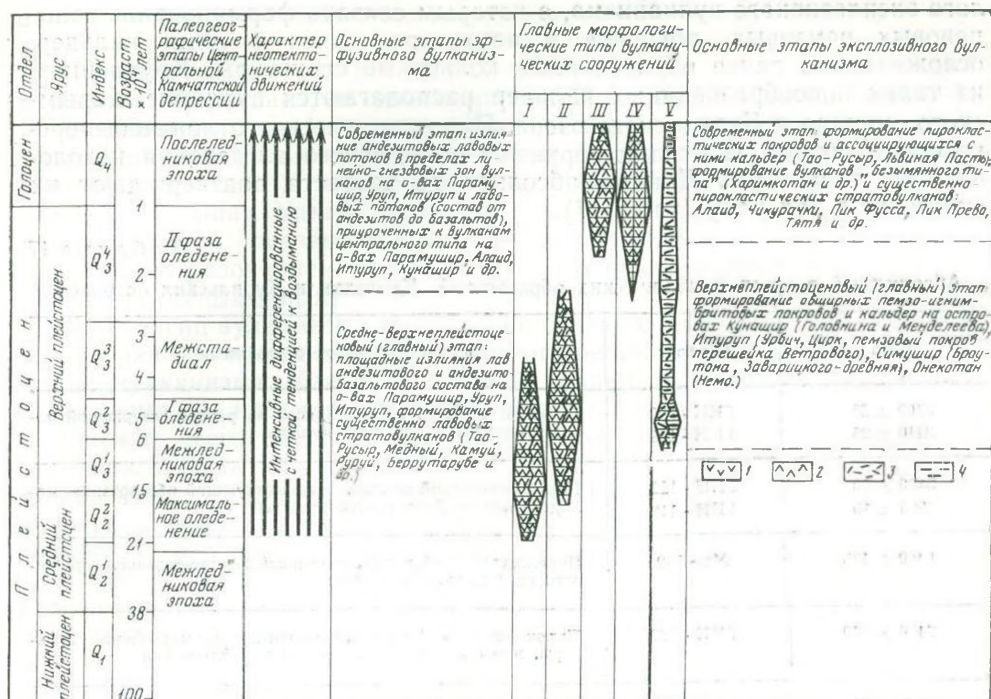 Отдел
Ярус
Индекс
Возраст
×10⁴ лет
Палеогеог-
рафические
этапы Цент-
ральной
Камчатской
депрессии
Характер
неотекто-
нических
движений
Основные этапы эф-
фузивного вулканиз-
ма
Главные морфологи-
ческие типы вулкани-
ческих сооружений
I II III IV V
Основные этапы эксплозивного вул-
канизма
Голоцен
Плейстоцен
Верхний плейстоцен
Средний
плейстоцен
Нижний
плейстоцен
Q₄
Q₃⁴
Q₃³
Q₃²
Q₃¹
Q₂²
Q₂¹
Q₁
1
2
3
4
5
6
15
21
38
100
Послелед-
никовая
эпоха
II фаза
оледене-
ния
Межста-
диал
I фаза
оледене-
ния
Межлед-
никовая
эпоха
Максималь-
ное оледе-
нение
Межлед-
никовая
эпоха
Интенсивные дифференцированные
с четкой тенденцией к воздыманию
Современный этап: излия-
ние андезитовых лавовых
потоков в пределах ли
нейно-гнездовых зон вул-
канов на о-вах Параму-
шир, Уруп, Итуруп и лаво-
вых потоков (состав от
андезитов до базальтов),
приуроченных к вулканам
центрального типа на
о-вах Парамушир, Алаид,
Итуруп, Кунашир и др.
Средне-верхнеплейстоце-
новый (главный) этап:
площадные излияния лав
андезитового и андезито-
базальтового состава на
о-вах Парамушир, Уруп,
Итуруп, формирование
существенно лавовых
стратовулканов (Тао-
Русыр, Медный, Камуй,
Руруй, Берутарубе и
др.)
Современный этап: формирование пирокла-
стических покровов и ассоциирующихся с
ними кальдер (Тао-Русыр, Львиная Пасть),
формирование вулканов „безымянного ти-
па" (Харимкотан и др.) и существенно
пирокластических стратовулканов:
Алаид, Чикурачки, Пик Фусса, Пик Прево,
Тятя и др.
Верхнеплейстоценовый (главный) этап:
формирование обширных пемзо-игним-
бритовых покровов и кальдер на остро-
вах Кунашир (Головнина и Менделеева),
Итуруп (Урбич, Цирк, пемзовый покров
перешейка Ветрового), Симушир (Броу-
тона, Заварицкого-древняя), Онекотан
(Немо.)
1 2 3 4